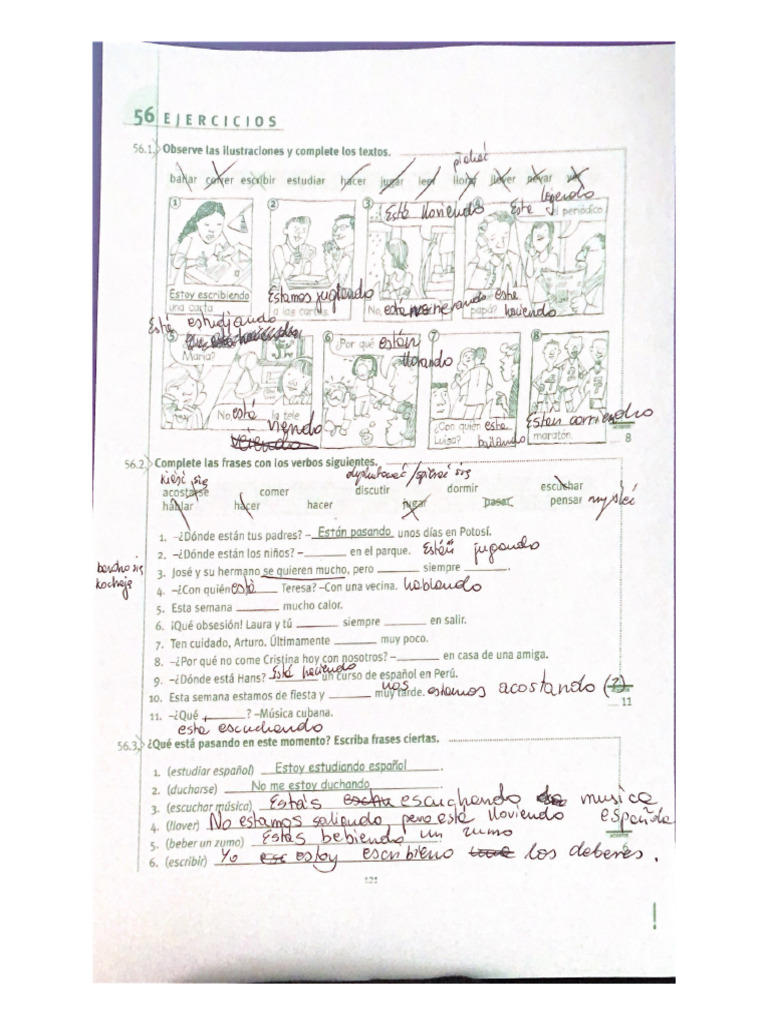 56 EJERCICIOS
56.1. Observe las ilustraciones y complete los textos.
bailar correr escribir estudiar hacer jugar leer llorar llover nevar ver
Está lloviendo
Está leyendo el periódico
1
2
3
Estoy escribiendo
una carta
Estamos jugtando
a las cartas.
No, está nevando
está
papá? haviendo
Está estudjando
María?
5
No está la tele
viendo
6
¿Por qué están
llorando
7
¿Con quién esta
Luisa? bailando
8
Estan corriendo
maratón.
8
56.2. Complete las frases con los verbos siguientes.
acostarse comer discutir dormir escuchar
hablar hacer hacer jugar pasar pensar
1. –¿Dónde están tus padres? – Están pasando unos días en Potosí.
2. –¿Dónde están los niños? – ________ en el parque. Están jugando
3. José y su hermano se quieren mucho, pero ________ siempre ________.
4. –¿Con quién está ________ Teresa? –Con una vecina. hablando
5. Esta semana ________ mucho calor.
6. ¡Qué obsesión! Laura y tú ________ siempre ________ en salir.
7. Ten cuidado, Arturo. Últimamente ________ muy poco.
8. –¿Por qué no come Cristina hoy con nosotros? – ________ en casa de una amiga.
9. –¿Dónde está Hans? Está haciendo un curso de español en Perú.
10. Esta semana estamos de fiesta y ________ muy tarde. nos estamos acostando (?)
11. –¿Qué ________? –Música cubana.
esta escuchando
11
56.3. ¿Qué está pasando en este momento? Escriba frases ciertas.
1. (estudiar español) Estoy estudiando español.
2. (ducharse) No me estoy duchando.
3. (escuchar música) Estás escuchando musica
española
4. (llover) No estamos saliendo pero está lloviendo
5. (beber un zumo) Estás bebiendo un zumo
6. (escribir) Yo estoy escribieno los deberes.
6
121